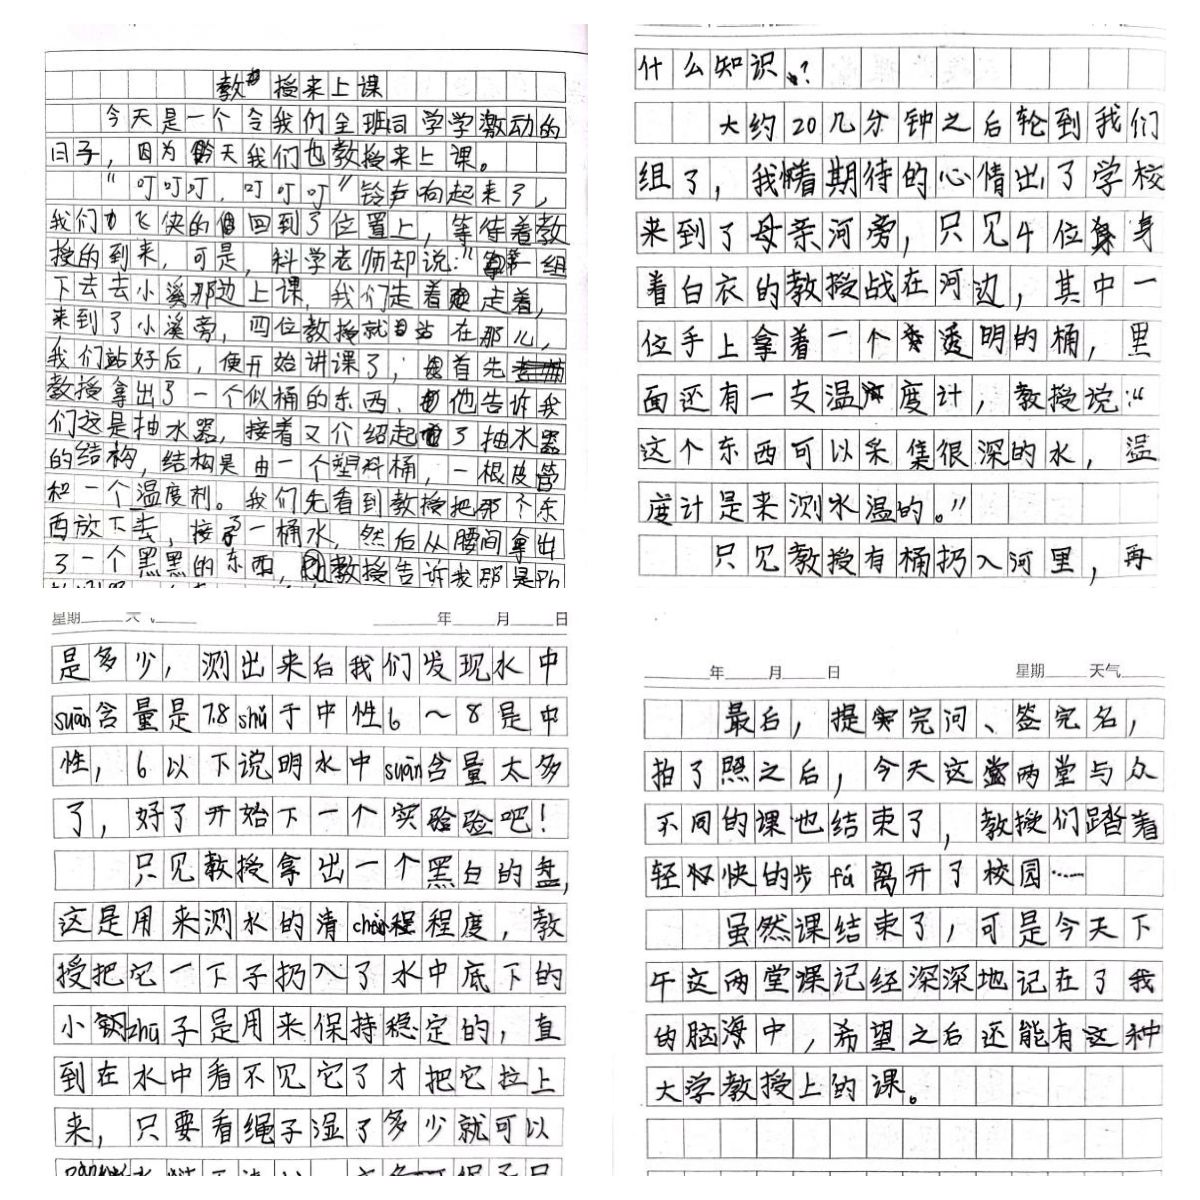 教授来上课
今天是一个令我们全班同学学激动的
日子，因为今天我们也教授来上课。
"叮叮叮，叮叮叮"铃声响起来了，
我们飞快的回到了位置上，等待着教
授的到来，可是，科学老师却说："第一组
下去去小溪那边上课，我们走着走着，
来到了小溪旁，四位教授就站在那儿，
我们站好后，便开始讲课了；首先
教授拿出了一个似桶的东西，他告诉我
们这是抽水器，接着又介绍起了抽水器
的结构，结构是由一个塑料桶，一根皮管
和一个温度剂。我们先看到教授把那个东
西放下去，接了一桶水，然后从腰间拿出
了一个黑黑的东西，教授告诉我那是
什么知识？
大约20几分钟之后轮到我们
组了，我怀着期待的心情出了学校
来到了母亲河旁，只见4位身
着白衣的教授战在河边，其中一
位手上拿着一个透明的桶，里
面还有一支温度计，教授说："
这个东西可以采集很深的水，温
度计是来测水温的。"
只见教授有桶扔入河里，再
星期 天气 年 月 日
是多少，测出来后我们发现水中
suān含量是7.8shǔ于中性6～8是中
性，6以下说明水中suān含量太多
了，好了开始下一个实验吧！
只见教授拿出一个黑白的盘，
这是用来测水的清chéng程度，教
授把它一下子扔入了水中底下的
小钢zhū子是用来保持稳定的，直
到在水中看不见它了才把它拉上
来，只要看绳子湿了多少就可以
年 月 日 星期 天气
最后，提完问、签完名，
拍了照之后，今天这两堂与众
不同的课也结束了，教授们踏着
轻快的步fá离开了校园……
虽然课结束了，可是今天下
午这两堂课记经深深地记在了我
的脑海中，希望之后还能有这种
大学教授上的课。